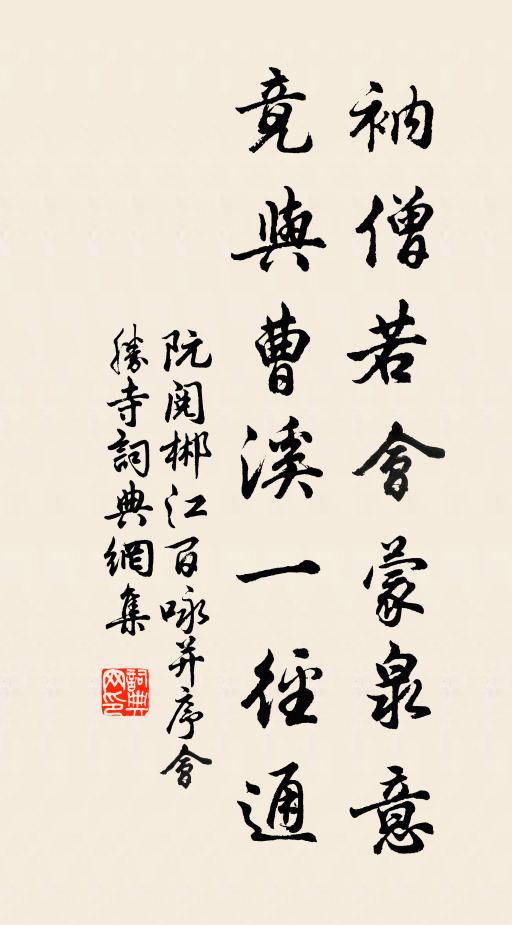 衲僧若會蒙泉意
竟與曹溪一徑通
阮閱郴江百咏并序會
勝寺詞典網集
詞典网印